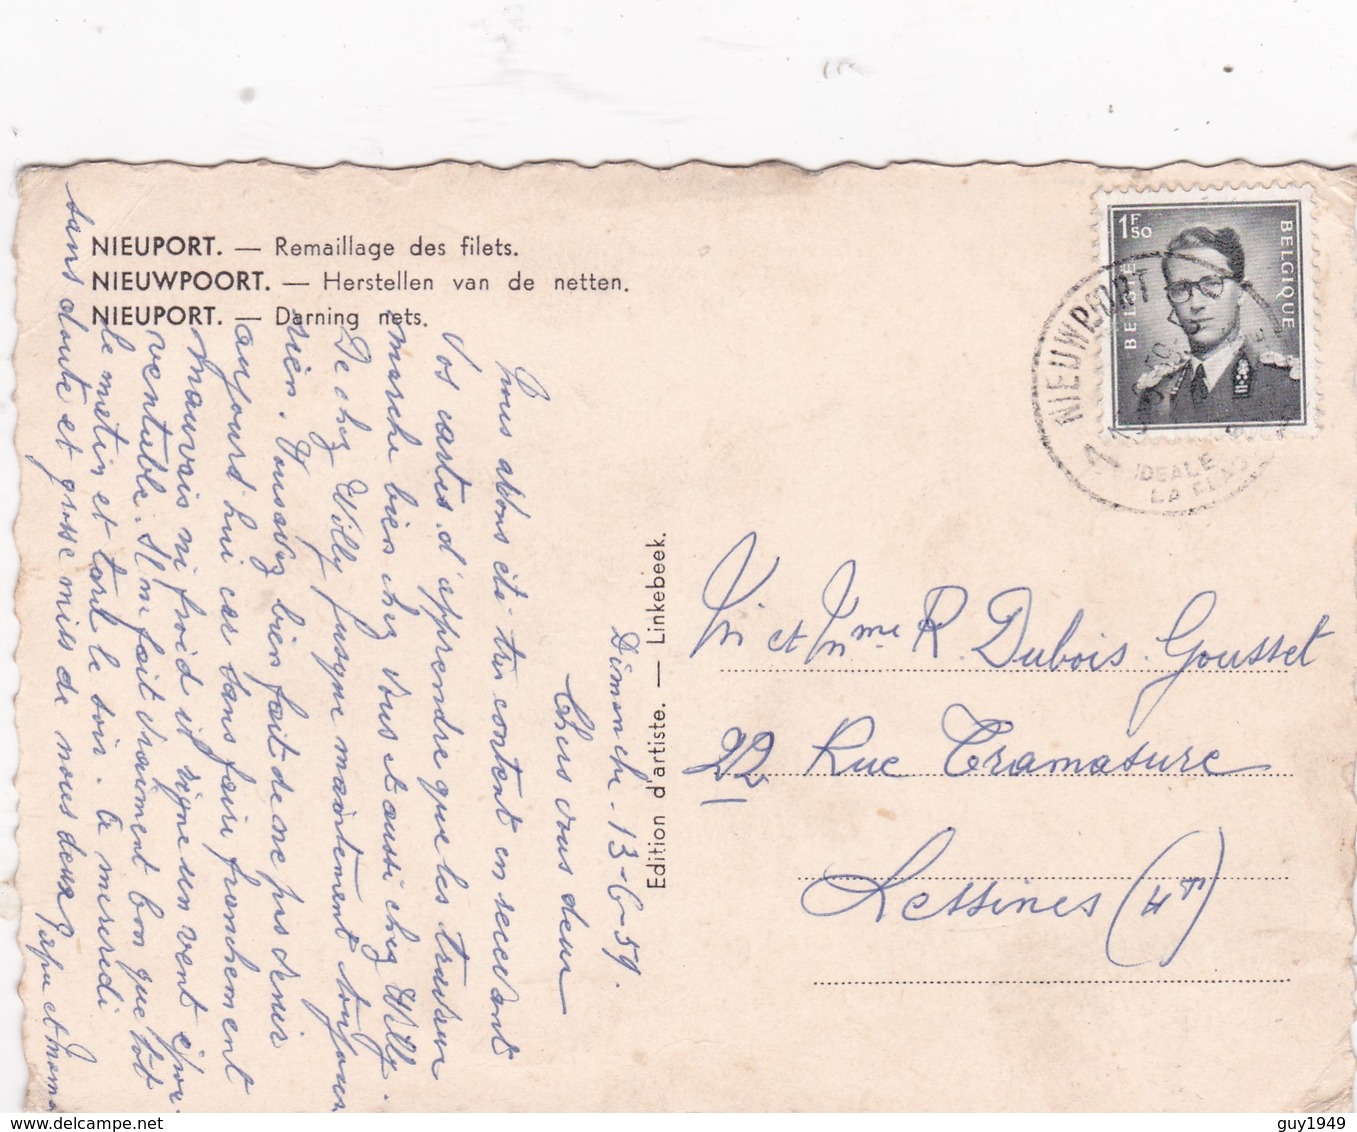 NIEUPORT. — Remaillage des filets.
NIEUWPOORT. — Herstellen van de netten.
NIEUPORT. — Darning nets.
Edition d'artiste. — Linkebeek.
Dimanche - 13-6-59.
Chers vous deux
Nous avons été très content en recevant
Vos cartes d'apprendre que les travaux
marche bien chez vous et aussi chez Willy.
De chez Willy jusque maintement toujours
rien. Vous avez bien fait de ne pas venir
aujourd'hui car sans faire franchement
mauvais ni froid il règne un vent
ventable. Il m fait vraiment bon que tôt
le matin et tard le soir. Ce mercredi
sans doute et grosse mills de nous deux
Papa et Mama
M et Mme R. Dubois. Gousset
22 Rue Tramasure
Lessines (HT)
1F50
BELGIE
BELGIQUE
NIEUWPOORT
IDEALE
guy1949